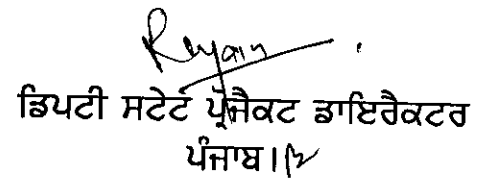 ਡਿਪਟੀ ਸਟੇਟ ਪ੍ਰੋਜੈਕਟ ਡਾਇਰੈਕਟਰ
ਪੰਜਾਬ।